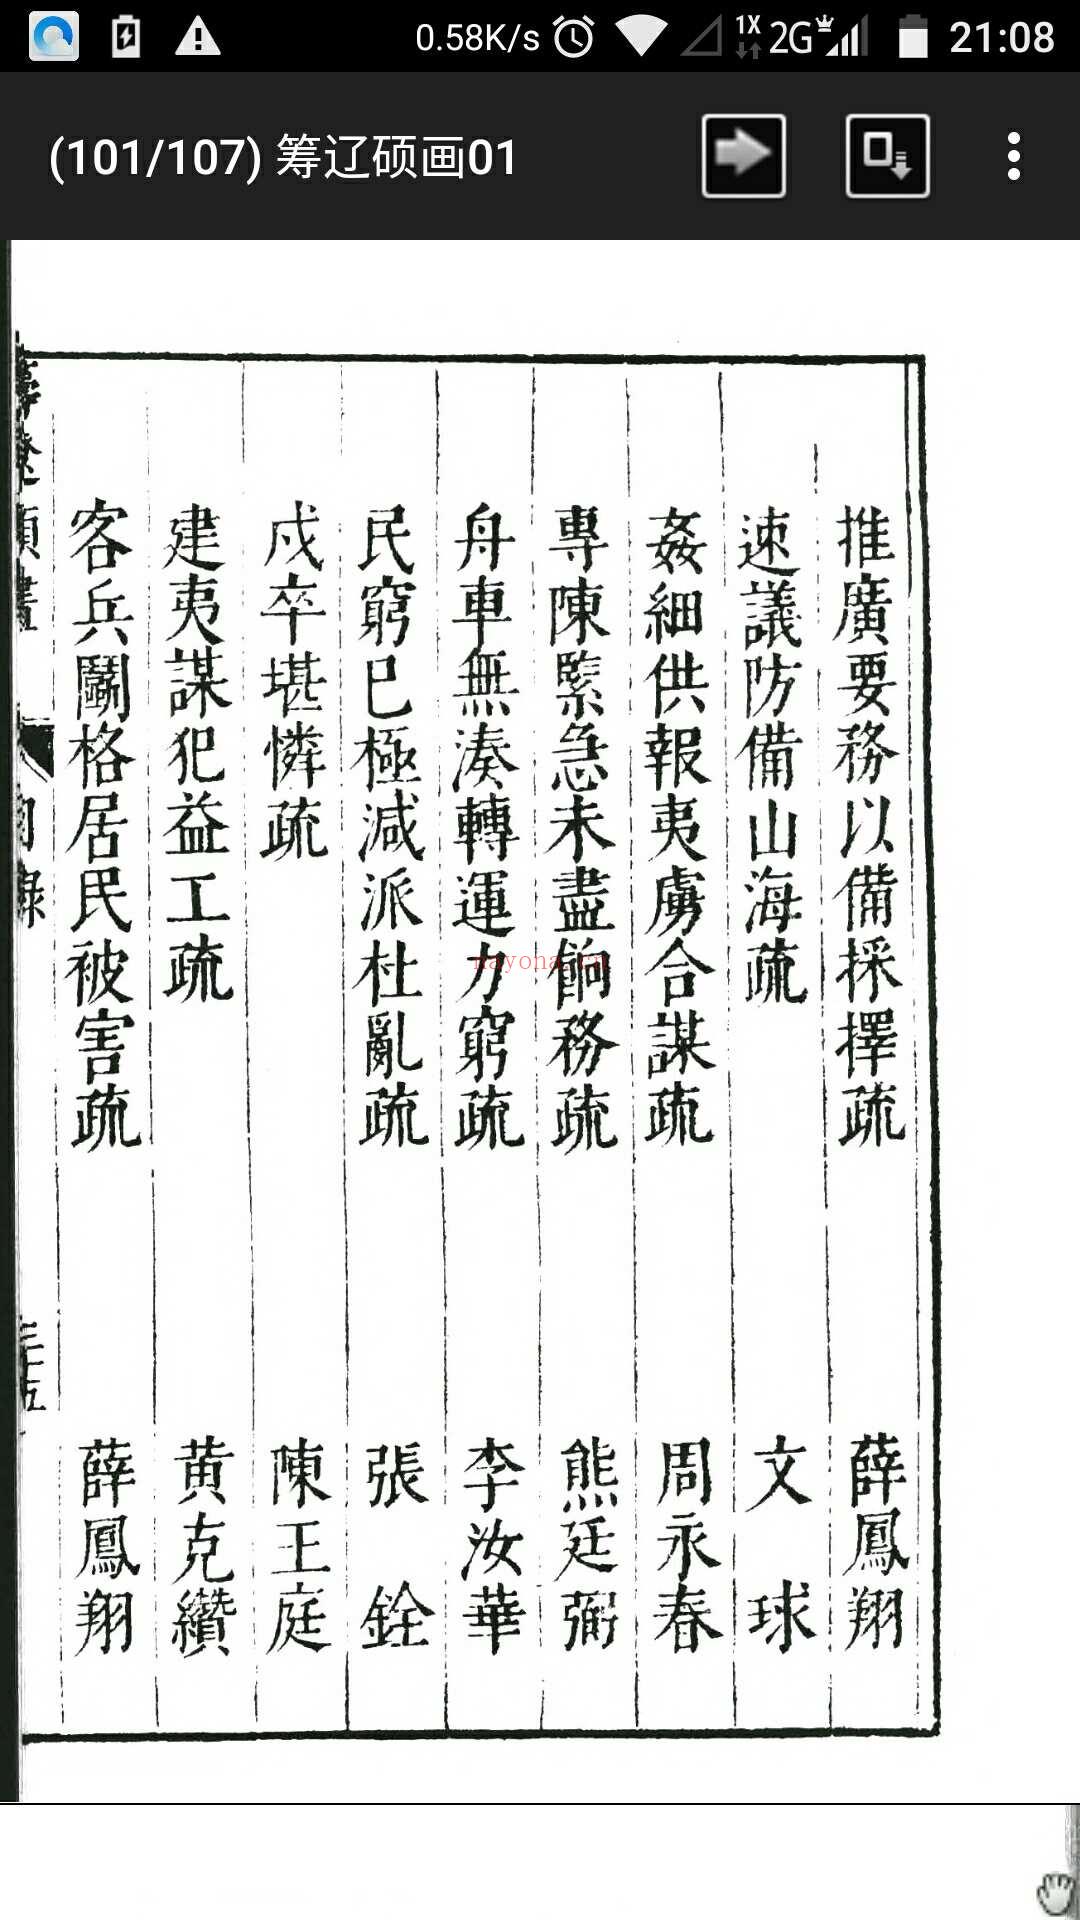 0.58K/s 1X 2G 21:08
(101/107) 筹辽硕画01
推廣要務以備採擇疏 薛鳳翔
速議防備山海疏 文球
姦細供報夷虜合謀疏 周永春
專陳緊急未盡餉務疏 熊廷弼
舟車無湊轉運力窮疏 李汝華
民窮已極減派杜亂疏 張銓
戍卒堪憐疏 陳王庭
建夷謀犯益工疏 黄克纘
客兵鬭格居民被害疏 薛鳳翔
nayona.cn